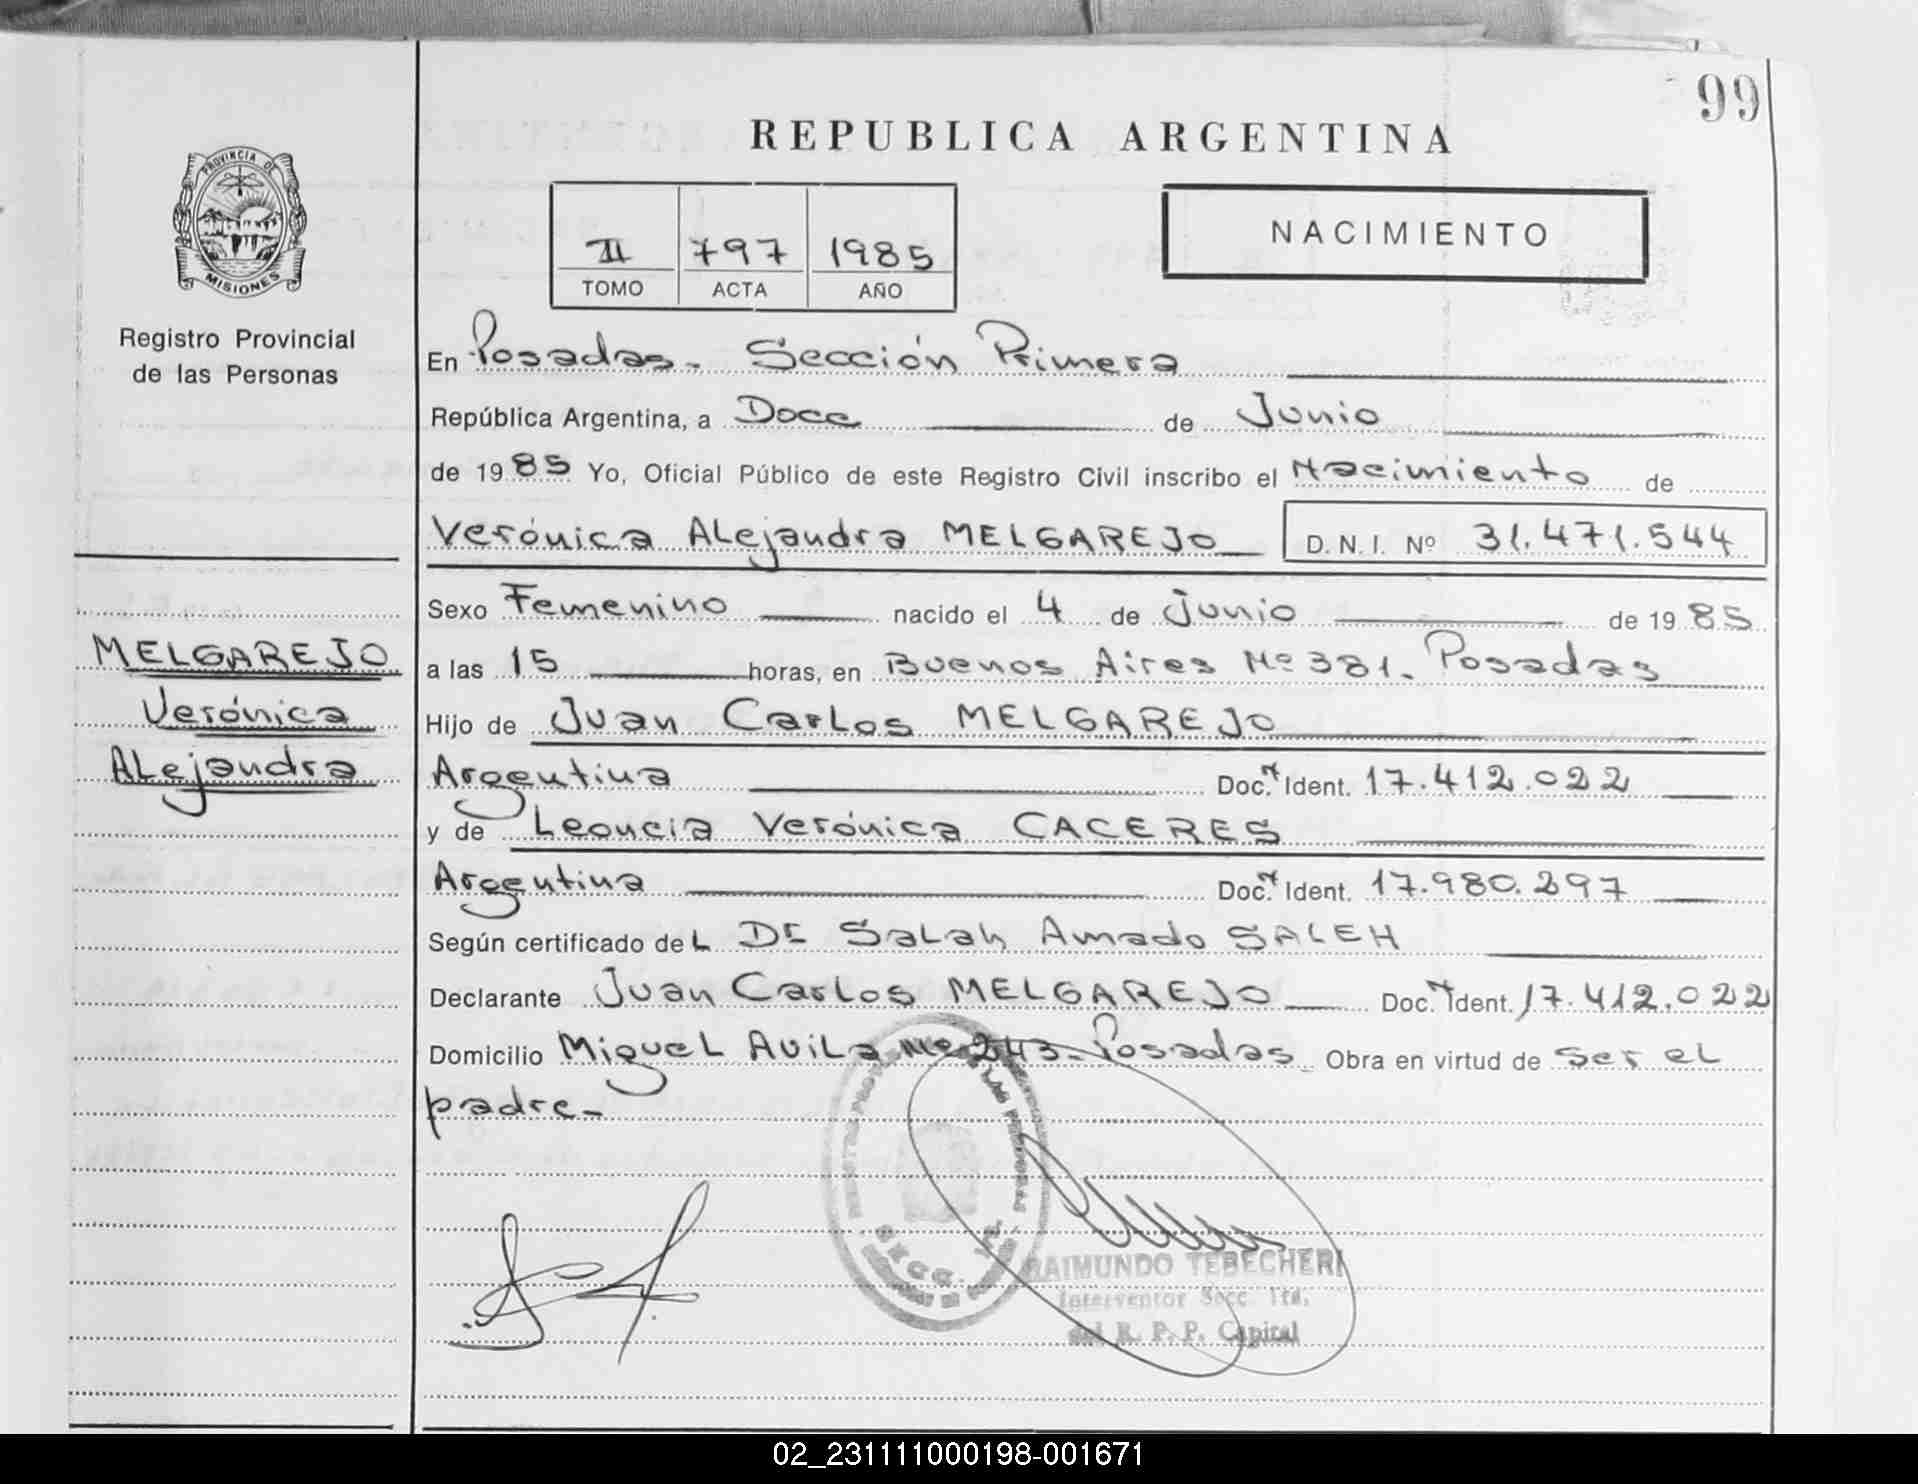 99
REPUBLICA ARGENTINA
PROVINCIA DE
MISIONES
II 797 1985
TOMO ACTA AÑO
NACIMIENTO
Registro Provincial
de las Personas
En Posadas. Sección Primera
República Argentina, a Doce de Junio
de 1985 Yo, Oficial Público de este Registro Civil inscribo el Nacimiento de
Verónica Alejandra MELGAREJO D.N.I. Nº 31.471.544
Sexo Femenino nacido el 4 de Junio de 1985
MELGAREJO
Verónica
Alejandra
a las 15 horas, en Buenos Aires Nº 381. Posadas
Hijo de Juan Carlos MELGAREJO
Argentina Doc. Ident. 17.412.022
y de Leoncia Verónica CACERES
Argentina Doc. Ident. 17.980.297
Según certificado del Dr Salah Amado SALEH
Declarante Juan Carlos MELGAREJO Doc. Ident. 17.412.022
Domicilio Miguel Avila Nº 243. Posadas Obra en virtud de ser el
padre-
RAIMUNDO TEBECHERI
Interventor Secc. 1ra.
del R. P. P. Capital
02_231111000198-001671